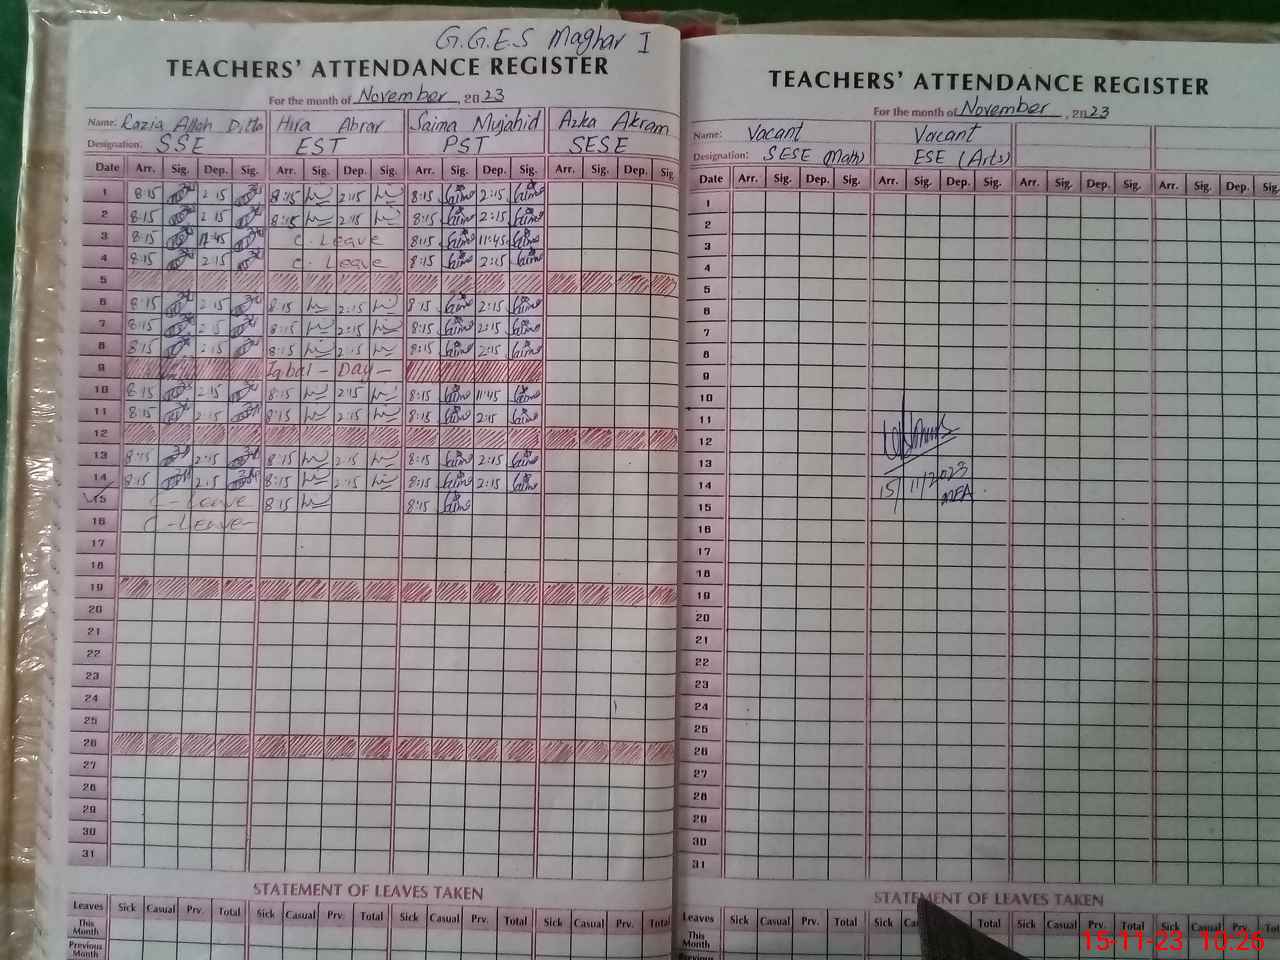 G.G.E.S Maghar I
TEACHERS' ATTENDANCE REGISTER
For the month of November, 2023
Name: Razia Allah Ditta Hira Abrar Saima Mujahid Azka Akram
Designation: SSE EST PST SESE
Date Arr. Sig. Dep. Sig. Arr. Sig. Dep. Sig. Arr. Sig. Dep. Sig. Arr. Sig. Dep. Sig
1 8:15 2:15 8:15 2:15 8:15 Saima 2:15 Saima
2 8:15 2:15 8:15 2:15 8:15 Saima 2:15 Saima
3 8:15 11:45 C. Leave 8:15 Saima 11:45 Saima
4 8:15 2:15 C. Leave 8:15 Saima 2:15 Saima
5
6 8:15 2:15 8:15 2:15 8:15 Saima 2:15 Saima
7 8:15 2:15 8:15 2:15 8:15 Saima 2:15 Saima
8 8:15 2:15 8:15 2:15 8:15 Saima 2:15 Saima
9 Iqbal - Day -
10 8:15 2:15 8:15 2:15 8:15 Saima 11:45 Saima
11 8:15 2:15 8:15 2:15 8:15 Saima 2:15 Saima
12
13 8:15 2:15 8:15 2:15 8:15 Saima 2:15 Saima
14 8:15 2:15 8:15 2:15 8:15 Saima 2:15 Saima
15 C - Leave 8:15 8:15 Saima
16 C - Leave -
17
18
19
20
21
22
23
24
25
26
27
28
29
30
31
STATEMENT OF LEAVES TAKEN
Leaves Sick Casual Prv. Total Sick Casual Prv. Total Sick Casual Prv. Total Sick Casual Prv. Total
This Month
Previous Month
TEACHERS' ATTENDANCE REGISTER
For the month of November, 2023
Name: Vacant Vacant
Designation: SESE (Math) ESE (Arts)
Date Arr. Sig. Dep. Sig. Arr. Sig. Dep. Sig. Arr. Sig. Dep. Sig. Arr. Sig. Dep. Sig.
1
2
3
4
5
6
7
8
9
10
11
12
13
14
15
16
17
18
19
20
21
22
23
24
25
26
27
28
29
30
31
15/11/2023
MEA
STATEMENT OF LEAVES TAKEN
Leaves Sick Casual Prv. Total Sick Total Sick Casual Prv. Total Sick
This Month
Previous
15-11-23 10:26